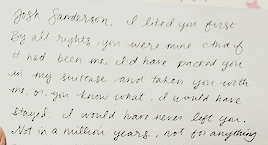 Josh Sanderson, I liked you first
By all rights, you were mine. And if
it had been me, I'd have packed you
in my suitcase and taken you with
me, or, you know what, I would have
stayed. I would have never left you.
Not in a million years, not for anything